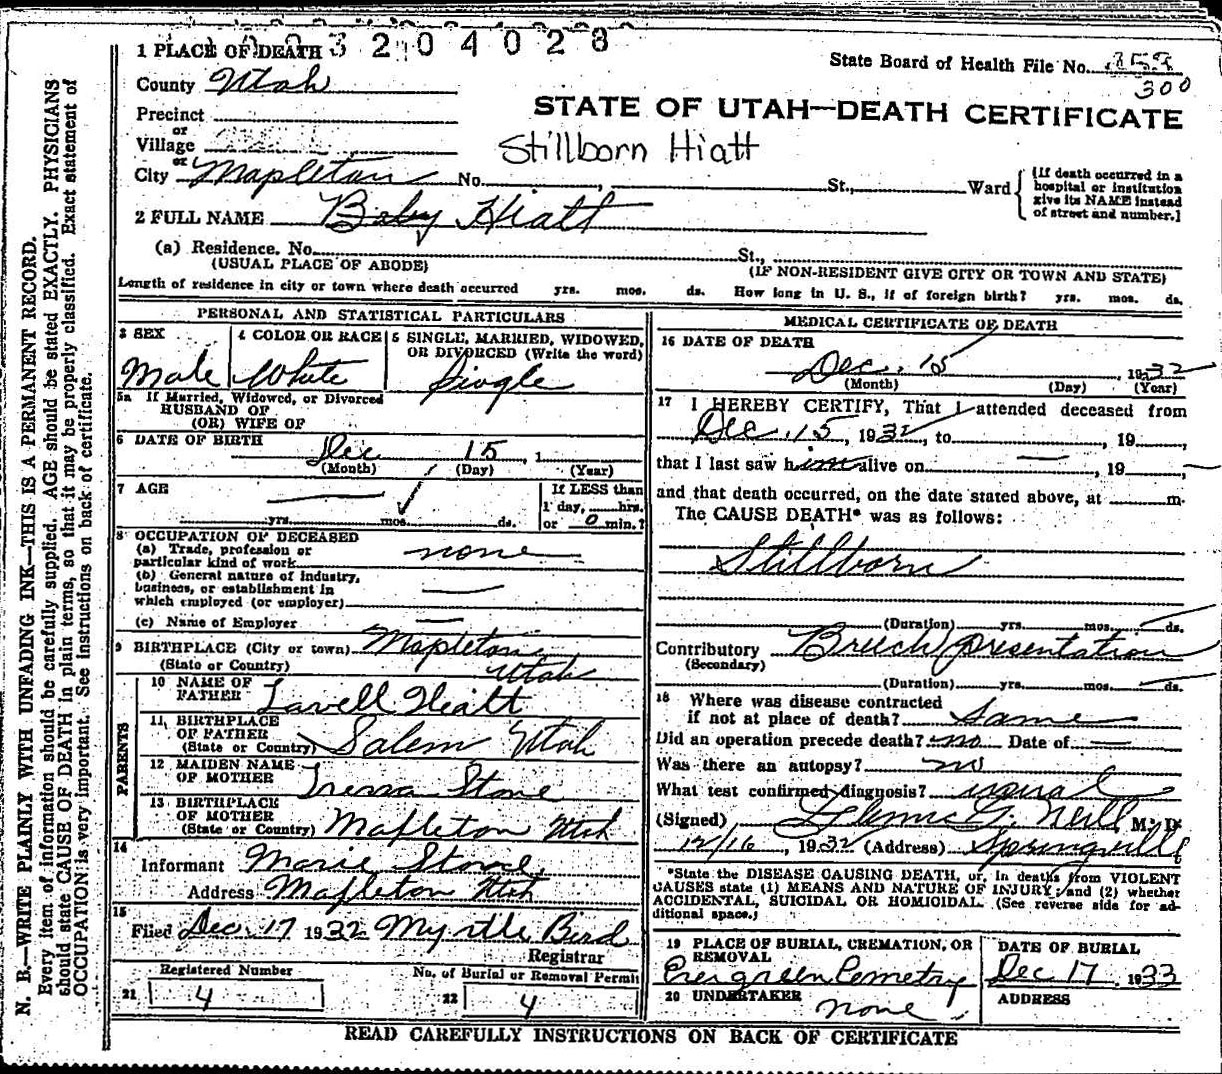 3204028
1 PLACE OF DEATH
State Board of Health File No. 359
300
County Utah
STATE OF UTAH—DEATH CERTIFICATE
Precinct
or
Village
Stillborn Hiatt
or
City Mapleton No. , St., Ward
(If death occurred in a
hospital or institution
give its NAME instead
of street and number.)
2 FULL NAME Baby Hiatt
(a) Residence. No. St.,
(USUAL PLACE OF ABODE) (IF NON-RESIDENT GIVE CITY OR TOWN AND STATE)
Length of residence in city or town where death occurred yrs. mos. ds. How long in U. S., if of foreign birth? yrs. mos. ds.
PERSONAL AND STATISTICAL PARTICULARS
3 SEX
Male
4 COLOR OR RACE
White
5 SINGLE, MARRIED, WIDOWED,
OR DIVORCED (Write the word)
Single
5a If Married, Widowed, or Divorced
HUSBAND OF
(OR) WIFE OF
6 DATE OF BIRTH
Dec 15, 1
(Month) (Day) (Year)
7 AGE
yrs. mos. ds.
If LESS than
1 day, hrs.
or 0 min.?
8 OCCUPATION OF DECEASED
(a) Trade, profession or
particular kind of work none
(b) General nature of industry,
business, or establishment in
which employed (or employer)
(c) Name of Employer
9 BIRTHPLACE (City or town) Mapleton,
(State or Country) Utah
PARENTS
10 NAME OF
FATHER Lavell Hiatt
11 BIRTHPLACE
OF FATHER
(State or Country) Salem Utah
12 MAIDEN NAME
OF MOTHER Tressa Stone
13 BIRTHPLACE
OF MOTHER
(State or Country) Mapleton Utah
14
Informant Marie Stone
Address Mapleton Utah
15
Filed Dec. 17 1932 Myrtle Bird
Registrar
Registered Number
21 4
No. of Burial or Removal Permit
22 4
MEDICAL CERTIFICATE OF DEATH
16 DATE OF DEATH
Dec. 15, 1932
(Month) (Day) (Year)
17 I HEREBY CERTIFY, That I attended deceased from
Dec. 15, 1932, to , 19
that I last saw him alive on , 19
and that death occurred, on the date stated above, at m.
The CAUSE DEATH* was as follows:
Stillborn
(Duration) yrs. mos. ds.
Contributory Breech presentation
(Secondary)
(Duration) yrs. mos. ds.
18 Where was disease contracted
if not at place of death? Same
Did an operation precede death? no Date of
Was there an autopsy? no
What test confirmed diagnosis?
(Signed) G. Neill M. D.
12/16, 1932 (Address) Springville
*State the DISEASE CAUSING DEATH, or, in deaths from VIOLENT
CAUSES state (1) MEANS AND NATURE OF INJURY; and (2) whether
ACCIDENTAL, SUICIDAL OR HOMICIDAL. (See reverse side for ad-
ditional space.)
19 PLACE OF BURIAL, CREMATION, OR
REMOVAL
Evergreen Cemetry
DATE OF BURIAL
Dec 17, 1933
20 UNDERTAKER
none
ADDRESS
READ CAREFULLY INSTRUCTIONS ON BACK OF CERTIFICATE
N. B.—WRITE PLAINLY WITH UNFADING INK—THIS IS A PERMANENT RECORD.
Every item of information should be carefully supplied. AGE should be stated EXACTLY. PHYSICIANS
should state CAUSE OF DEATH in plain terms, so that it may be properly classified. Exact statement of
OCCUPATION is very important. See instructions on back of certificate.